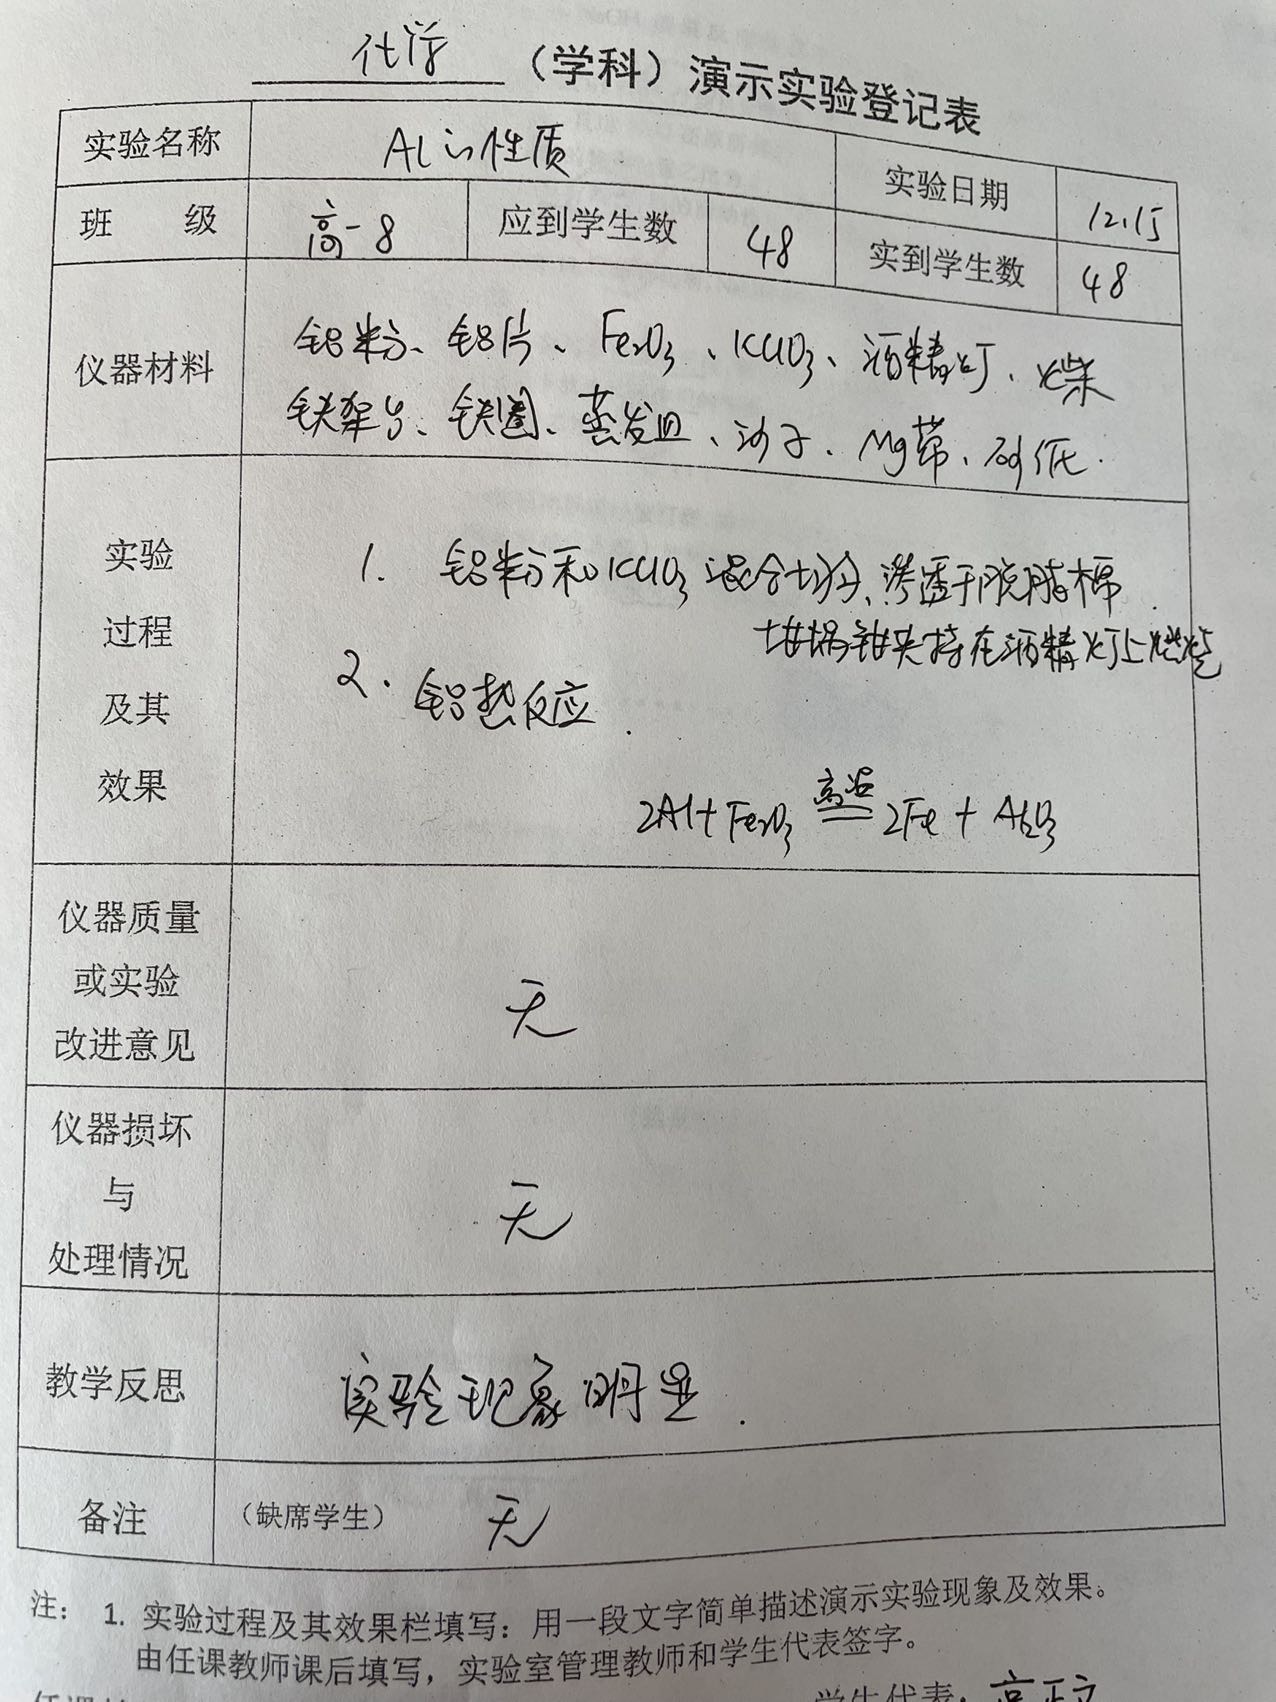 化学 （学科）演示实验登记表
实验名称 Al的性质 实验日期 12.15
班 级 高一8 应到学生数 48 实到学生数 48
仪器材料 铝粉、铝片、Fe₂O₃、KClO₃、酒精灯、火柴
铁架台、铁圈、蒸发皿、沙子、Mg带、砂纸.
实验
过程
及其
效果
1. 铝粉和KClO₃混合均匀、渗透于脱脂棉.
坩埚钳夹持在酒精灯上燃烧
2. 铝热反应.
2Al+Fe₂O₃ 高温 == 2Fe + Al₂O₃
仪器质量
或实验
改进意见
无
仪器损坏
与
处理情况
无
教学反思 实验现象明显.
备注 （缺席学生） 无
注： 1. 实验过程及其效果栏填写：用一段文字简单描述演示实验现象及效果。
由任课教师课后填写，实验室管理教师和学生代表签字。
学生代表：